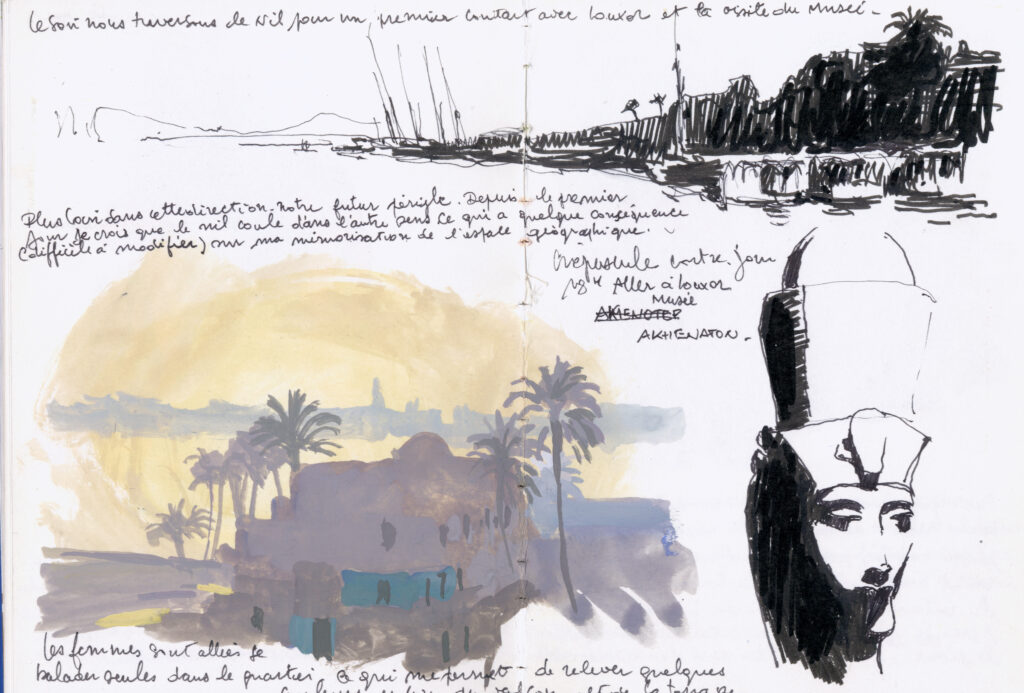 Le soir nous traversons le Nil pour un premier contact avec Louxor et la visite du Musée.
Plus loin dans cette direction. notre futur périple. Depuis le premier
jour je crois que le nil coule dans l'autre sens ce qui a quelque conséquence
(difficile à modifier) sur ma mémorisation de l'espace géographique.
Crépuscule contre jour
18H Aller à Louxor
Musée
AKHENATON.
les femmes sont allées se
balader seules dans le quartier, ce qui me permet de relever quelques
couleurs et de la terrasse